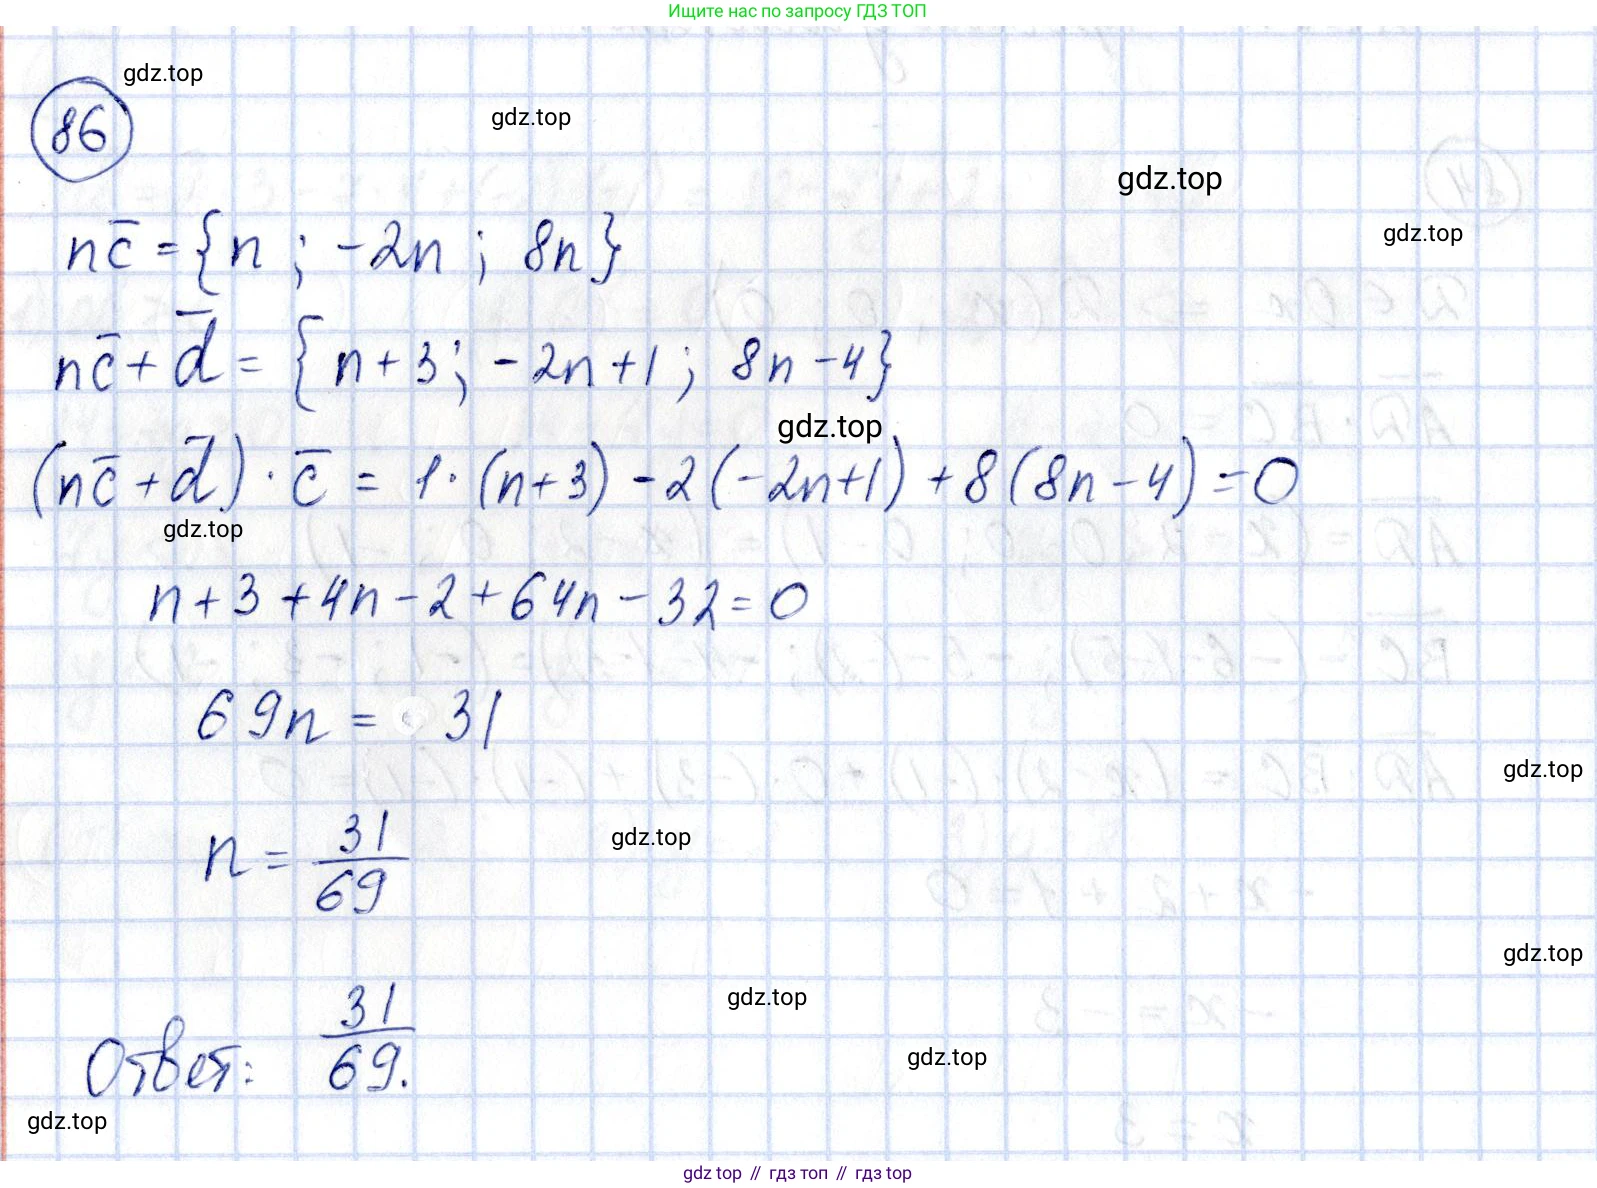 Ищите нас по запросу ГДЗ ТОП
gdz.top
86
gdz.top
gdz.top
gdz.top
nc̅ = {n ; -2n ; 8n}
nc̅ + d̅ = {n+3; -2n+1; 8n-4}
gdz.top
(nc̅ + d̅) · c̅ = 1·(n+3) - 2(-2n+1) + 8(8n-4) = 0
gdz.top
n+3+4n-2+64n-32=0
69n = 31
gdz.top
n = 31/69
gdz.top
gdz.top
gdz.top
Ответ: 31/69.
gdz.top
gdz.top
gdz top // гдз топ // гдз top